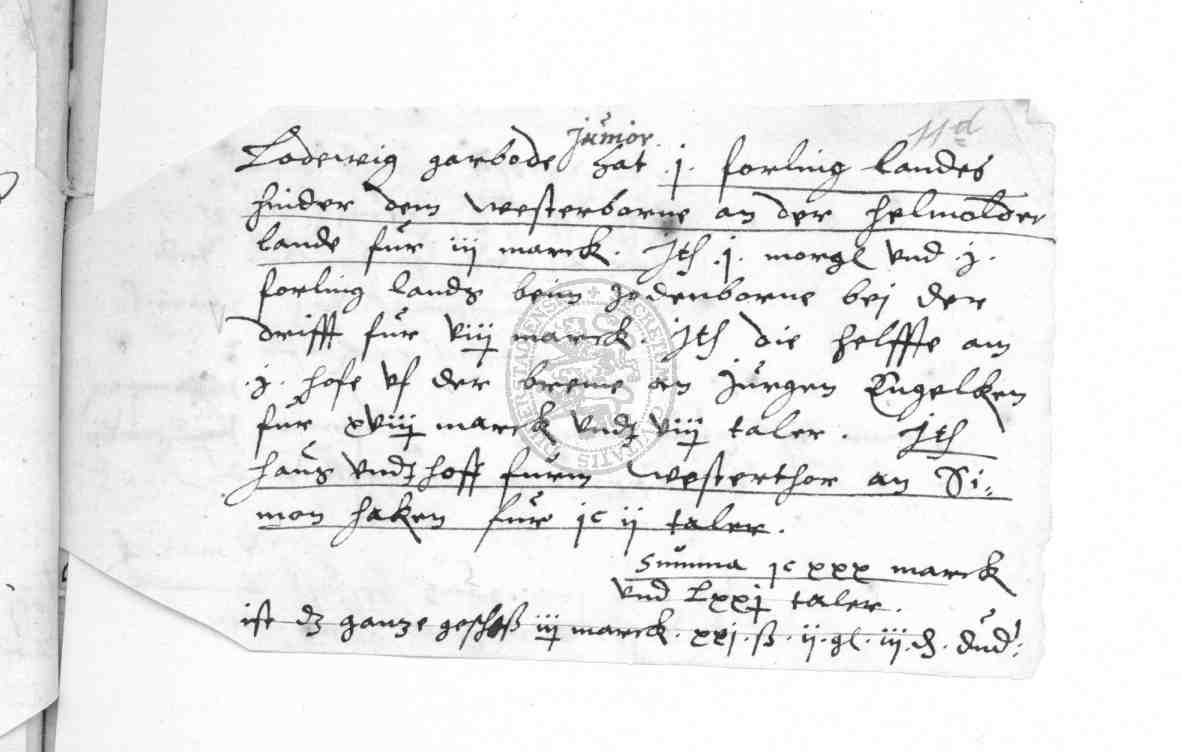 11d
junior
Lodewig garbode hat .j. forling landes
hinder dem westerborne an der helmolder
lande für iij marck. Jth .j. morgl vnd .j.
forling landß beim jodenborne bej der
drifft für viij marck. Jth die helffte am
.j. hofe vf der breme an Jürgen Engelken
für xviij marck vnd viij taler. Jth
hauß vnd hoff fürm westerthor an Si=
mon haken für jc ij taler.
Summa jc xxx marck
vnd Lxxj taler.
ist dz gantze geschoß iij marck. xxj. ß. ij. gl. iij. d.
SECRETUM CIVITATIS